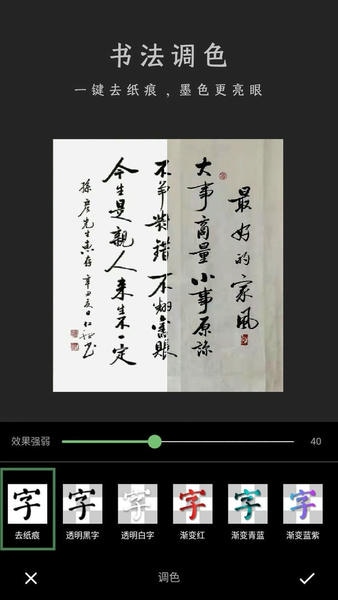 书法调色
一键去纸痕，墨色更亮眼
最好的家风
大事商量小事原谅
不争对错不翻旧账
今生是亲人来生不一定
效果强弱
40
字
去纸痕
字
透明黑字
字
透明白字
字
渐变红
字
渐变青蓝
字
渐变蓝紫
调色